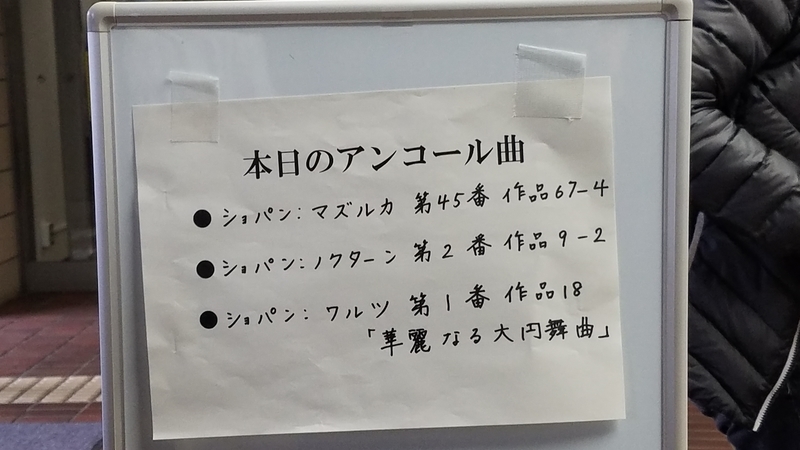 本日のアンコール曲
● ショパン: マズルカ 第45番 作品67-4
● ショパン: ノクターン 第2番 作品9-2
● ショパン: ワルツ 第1番 作品18
「華麗なる大円舞曲」